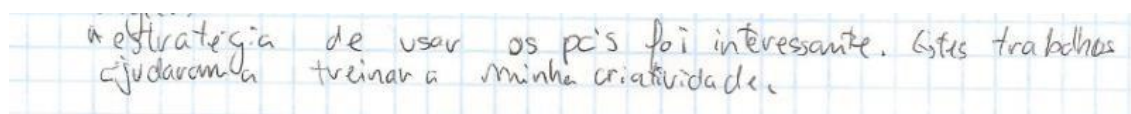 A estrategia de usar os pc's foi interessante. Estes trabalhos
ajudaram a treinar a minha criatividade.